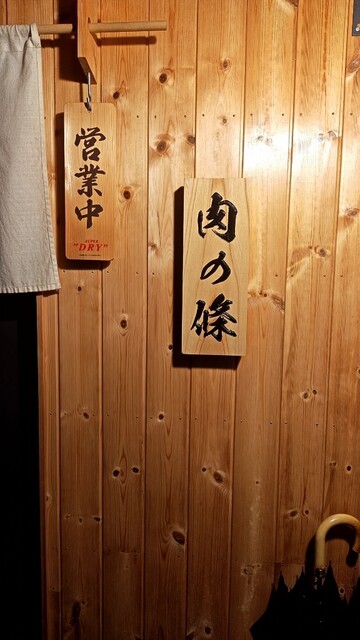 営業中
SUPER
"DRY"
肉の條